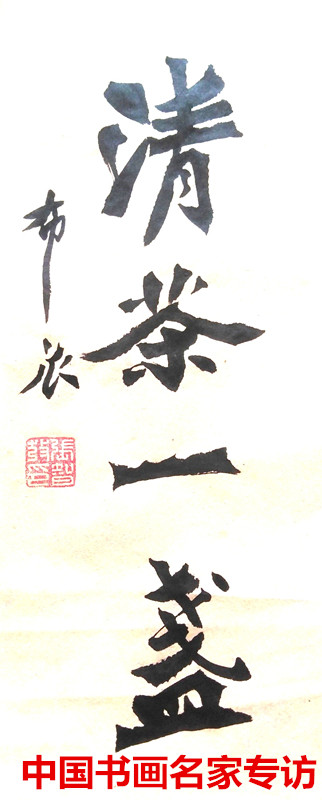 清茶一盏
布衣
中国书画名家专访